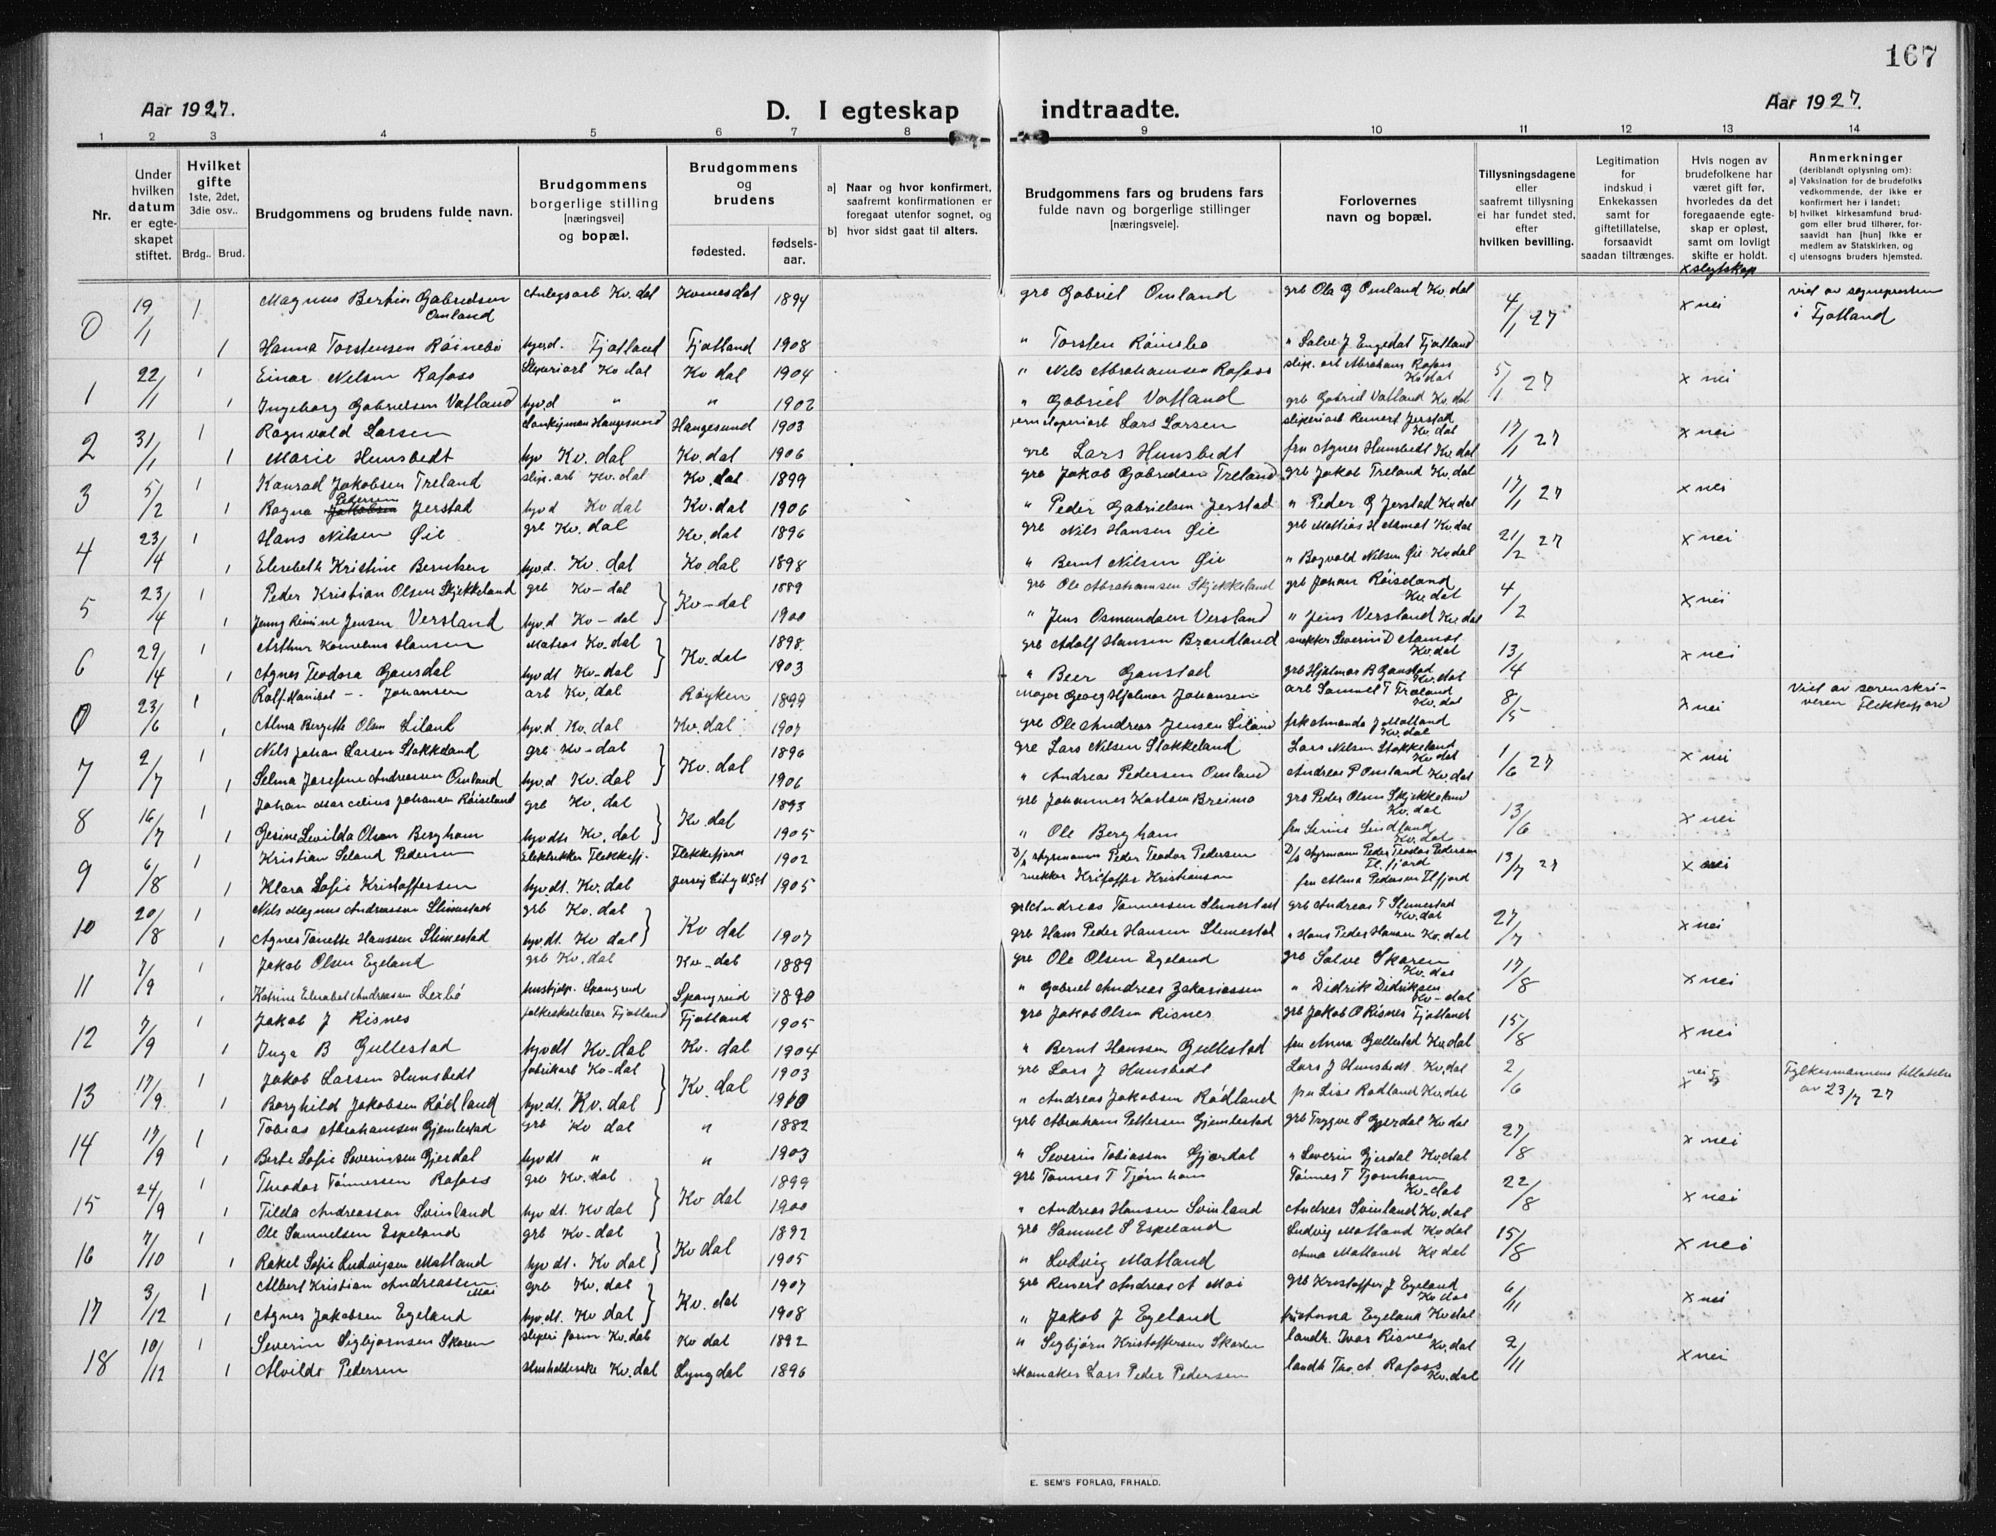 167
Aar 1927.
D. I egteskap indtraadte.
Aar 1927.
1 2 3 4 5 6 7 8 9 10 11 12 13 14
Nr.
Under hvilken datum er egteskapet stiftet.
Hvilket gifte 1ste, 2det, 3die osv..
Brdg.. Brud.
Brudgommens og brudens fulde navn.
Brudgommens borgerlige stilling [næringsvei] og bopæl.
Brudgommens og brudens
fødested. fødselsaar.
a] Naar og hvor konfirmert, saafremt konfirmationen er foregaat utenfor sognet, og
b] hvor sidst gaat til alters.
Brudgommens fars og brudens fars fulde navn og borgerlige stillinger [næringsvei].
Forlovernes navn og bopæl.
Tillysningsdagene eller saafremt tillysning ei har fundet sted, efter hvilken bevilling.
Legitimation for indskud i Enkekassen samt for giftetillatelse, forsaavidt saadan tiltrænges.
Hvis nogen av brudefolkene har været gift før, hvorledes da det foregaaende egteskap er opløst, samt om lovligt skifte er holdt.
x slegtskap
Anmerkninger (deriblandt oplysning om):
a) Vaksination for de brudefolks vedkommende, der ikke er konfirmert her i landet;
b) hvilket kirkesamfund brudgom eller brud tilhører, forsaavidt han [hun] ikke er medlem av Statskirken, og
c) utensogns bruders hjemsted.
0 19/1 1 Magnus Bertin Gabrielsen Omland Anlegsarb Kv.dal Kvinesdal 1894 grb Gabriel Omland grb Ola G Omland Kv.dal 4/1 27 x nei viet av sognepresten i Fjotland
1 Hanna Torstensen Røinebø hyrd. Fjotland Fjotland 1908 " Torsten Røinebø " Salve J Engedal Fjotland
1 22/1 1 Einar Nilsen Rafoss Sliperiarb Kv dal Kv dal 1904 " Nils Abrahamsen Rafoss slip. arb Abraham Rafoss Kv dal 5/1 27 x nei
1 Ingeborg Gabrielsen Vatland hyv.d " " 1902 " Gabriel Vatland grb Gabriel Vatland Kv. dal
2 31/1 1 Ragnvald Larsen Haugesund Haugesund 1903 Lars Larsen sliperiarb Reinert Jerstad Kv. dal 17/1 27 x nei
1 Marie Hunsbedt hyv Kv. dal Kv. dal 1906 grb Lars Hunsbedt fru Agnes Hunsbedt Kv. dal
3 5/2 1 Konrad Jakobsen Treland slip. arb Kv. dal Kv. dal 1899 grb Jakob Gabrielsen Treland grb Jakob Treland Kv. dal 17/1 27 x nei
1 Ragna Pedersen Jerstad hyv d Kv dal Kv. dal 1906 " Peder Gabrielsen Jerstad " Peder G Jerstad Kv dal
4 23/4 1 Hans Nilsen Øie grb Kv. dal Kv. dal 1896 grb Nils Hansen Øie grb Mathias H Aamot Kv dal 21/2 27 x nei
1 Elisebeth Kristine Berntsen hyv.d. Kv. dal Kv. dal 1898 " Bernt Nilsen Øie " Bogvald Nilsen Øie Kv dal
5 23/4 1 Peder Kristian Olsen Skjekkeland grb Kv-dal Kv-dal 1889 grb Ole Abrahamsen Skjekkeland grb Johan Røiseland Kv. dal 4/2 x nei
1 Jenny Rimine Jensen Versland hyv.d Kv-dal 1900 " Jens Osmundsen Versland " Jens Versland Kv dal
6 29/4 1 Arthur Kornelius Hansen Matros Kv. dal Kv. dal 1898 grb Adolf Hansen Brandland snekker Severin D Aamot Kv. dal 13/4 x nei
1 Agnes Teodora Gausdal hyv dt Kv-dal 1903 " Beer Ganstad grb Hjalmar B Ganstad Kv. dal
0 23/6 1 Rolf Johansen arb Kv, dal Røyken 1899 Major Georg Hjalmar Johansen arb Samuel T Træland Kv. dal 8/5 x nei Viet av sorenskriveren Flekkefjord
1 Alma Bergitte Olsen Liland hyv.d Kv. dal Kv. dal 1907 grb Ole Andreas Jensen Liland frk Amanda J Matland Kv. dal
7 2/7 1 Nils Johan Larsen Stakkeland grb Kv-dal Kv. dal 1896 grb Lars Nilsen Stakkeland Lars Nilsen Stakkeland Kv dal 1/6 27 x nei
1 Selma Josefine Andreasen Omland hyv.d Kv. dal 1906 " Andreas Pedersen Omland Andreas P Omland Kv. dal
8 16/7 1 Johan Marcelius Johansen Røiseland grb Kv, dal Kv. dal 1893 grb Johannes Karlsen Breimo grb Peder Olsen Skjekkeland Kv. dal 13/6 x nei
1 Gesine Sevilda Olsen Bergham hyv dt. Kv, dal 1905 " Ole Bergham fru Serine Lindland Kv. dal
9 6/8 1 Kristian Seland Pedersen Elektriker Flekkefj. Flekkefjord 1902 D/s styrmann Peder Teodor Pedersen D/s styrmann Peder Teodor Pedersen Fl. fjord 13/7 27 x nei
1 Klara Sofie Kristoffersen hyv.dt. Kv. dal Jersey City USA 1905 snekker Kristoffer Kristiansen fru Alma Pedersen Fl fjord
10 20/8 1 Nils Magnus Andreassen Slimestad grb Kv. dal Kv dal grb Andreas Tønnessen Slimestad grb Andreas T Slimestad Kv. dal 27/7 x nei
1 Agnes Tonette Hanssen Slimestad hyv.dt. Kv dal 1907 grb Hans Peder Hansen Slimestad " Hans Peder Hansen Kv. dal
11 7/9 1 Jakob Olsen Egeland grb Kv. dal Kv-dal 1889 grb Ole Olsen Egeland grb Salve Skaren Kv. dal 17/8 x nei
1 Katrine Elisabet Andreassen Lexbø hushjelp. Spangreid Spangreid 1890 " Gabriel Andreas Zakariassen " Didrik Didriksen Kv-dal
12 7/9 1 Jakob J Risnes folkeskolelærer Fjotland Fjotland 1905 grb Jakob Olsen Risnes grb Jakob O Risnes Fjotland 15/8 x nei
1 Inga B Gullestad hyv dt Kv-dal Kv. dal 1904 " Bernt Hanssen Gullestad fru Anna Gullestad Kv. dal
13 17/9 1 Jakob Larsen Hunsbedt fabrikarb Kv-dal Kv. dal 1903 grb Lars J Hunsbedt Lars J Hunsbedt. Kv. dal 2/6 x nei Fylkesmannens tillatelse av 23/7 27
1 Borghild Jakobsen Rødland hyv.dt. Kv. dal 1910 " Andreas Jakobsen Rødland fru Lise Rødland Kv. dal
14 17/9 1 Tobias Abrahamsen Gjemlestad grb Kv dal " 1882 grb Abraham Pettersen Gjemlestad grb Trygve S Gjerdal Kv dal 27/8 x nei
1 Berte Sofie Severinsen Gjerdal hyv dt " " 1903 " Severin Tobiassen Gjerdal " Severin Gjerdal Kv. dal
15 24/9 1 Theodor Tønnessen Rafoss grb Kv. dal Kv dal 1899 grb Tønnes T Tjørnhom Tønnes T Tjornhom Kv-dal 22/8 x nei
1 Tilda Andreassen Svinland hyv dt. Kv dal 1900 " Andreas Hansen Svinland Andreas Svinland Kv. dal
16 7/10 1 Ole Samuelsen Espeland grb Kv-dal Kv dal 1892 grb Samuel S Espeland Ludvig Matland Kv dal 15/8 x nei
1 Rakel Sofie Ludvigsen Matland hyv dt. Kv dal 1905 " Ludvig Matland Anna Matland Kv dal
17 3/12 1 Albert Kristian Andreassen Moi grb Kv. dal Kv. dal 1907 grb Reinert Andreas A Moi grb Kristoffer J Egeland Kv dal 6/11 x nei
1 Agnes Jakobsen Egeland hyv.dt. Kv dal 1908 " Jakob J Egeland Egeland Kv dal
18 10/12 1 Severin Sigbjørnsen Skaren sliperi form Kv. dal Kv dal 1892 " Sigbjørn Kristoffersen Skaren landh. Ivar Risnes Kv. dal 2/11 x nei
1 Alvilde Pedersen Husholderske Kv. dal Lyngdal 1896 Lars Peder Pedersen landh Th. A. Rafoss Kv. dal
E. SEM'S FORLAG, FR.HALD.